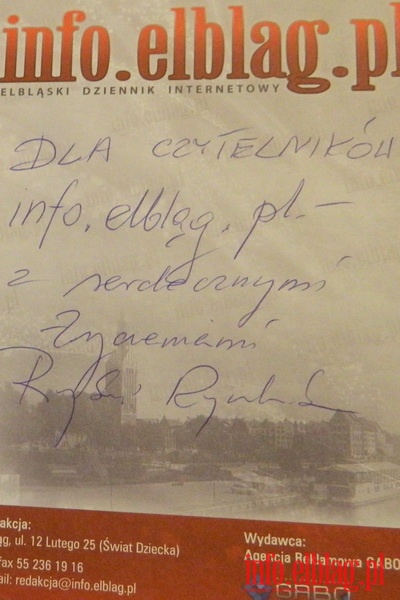 info.elblag.pl
ELBLĄSKI DZIENNIK INTERNETOWY
DLA CZYTELNIKÓW
info.elbląg.pl. –
z serdecznymi
życzeniami
akcja:
ąg, ul. 12 Lutego 25 (Świat Dziecka)
fax 55 236 19 16
ail: redakcja@info.elblag.pl
Wydawca:
Agencja Reklamowa GABO
info.elblag.pl
GABO